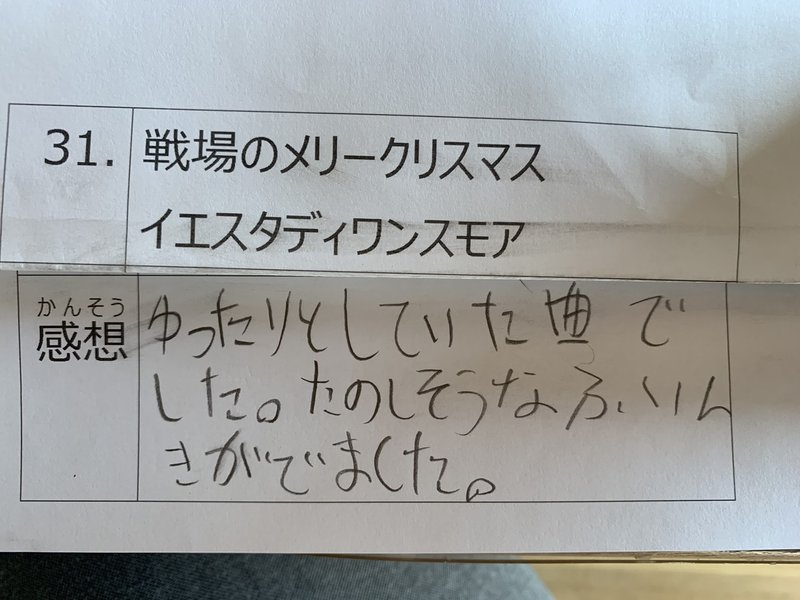 31. 戦場のメリークリスマス
イエスタディワンスモア
かんそう
感想
ゆったりとしていた曲で
した。たのしそうなふいん
きがでました。